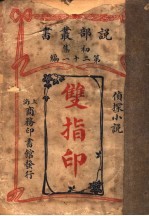 說部叢書
初集
第三十一編
偵探小說
雙指印
上海
商務印書館發行